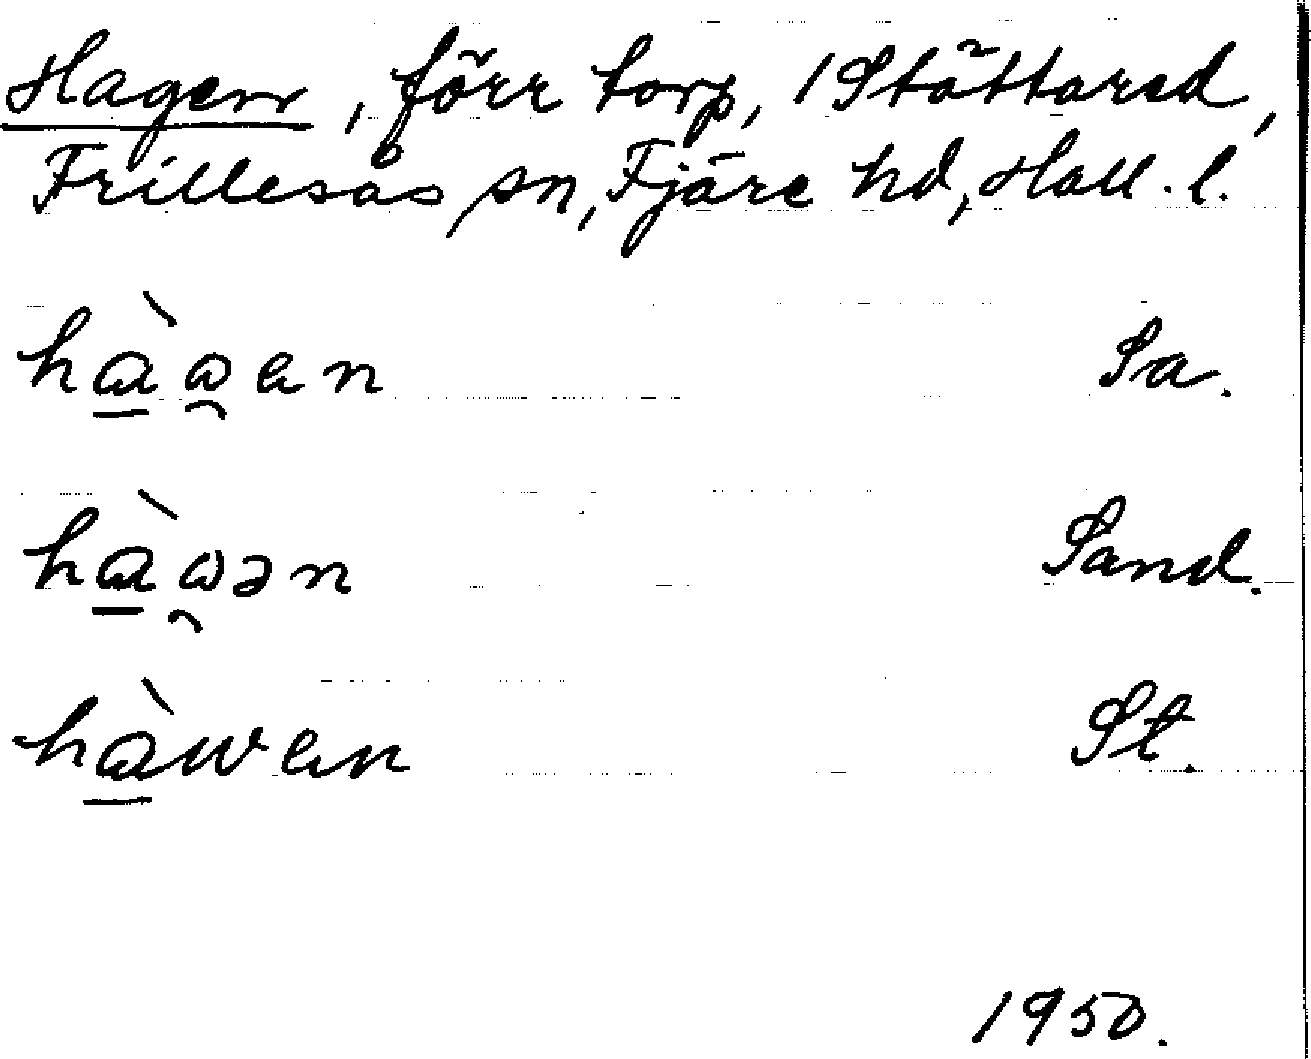 Hagen, förr torp, 1 Stättared,
Frillesås sn, Fjäre hd, Hall. l.
hɑ̠̀ω̯en Sa.
hɑ̠̀ω̯ən Sand.
hɑ̠̀wen St.
1950.